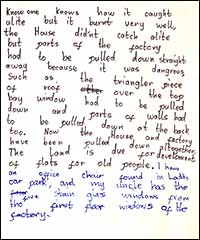 know one knows how it caught
alite but it burnt very well,
the House didnt catch alite
but parts of the factory
had to be pulled down straight
away because it was dangrous
Such as the triangler piece
of roof over the top
boy window had to be pulled
down and parts of walls had
to be pulled down at the back
too. Now the House and factory
have been pulled down alltogether,
The Land is due for development
of flats for old people. I have
an office chair found in Ladds
car park, and my uncle has the
five stain glass windows from
the first floor widows of the
factory.